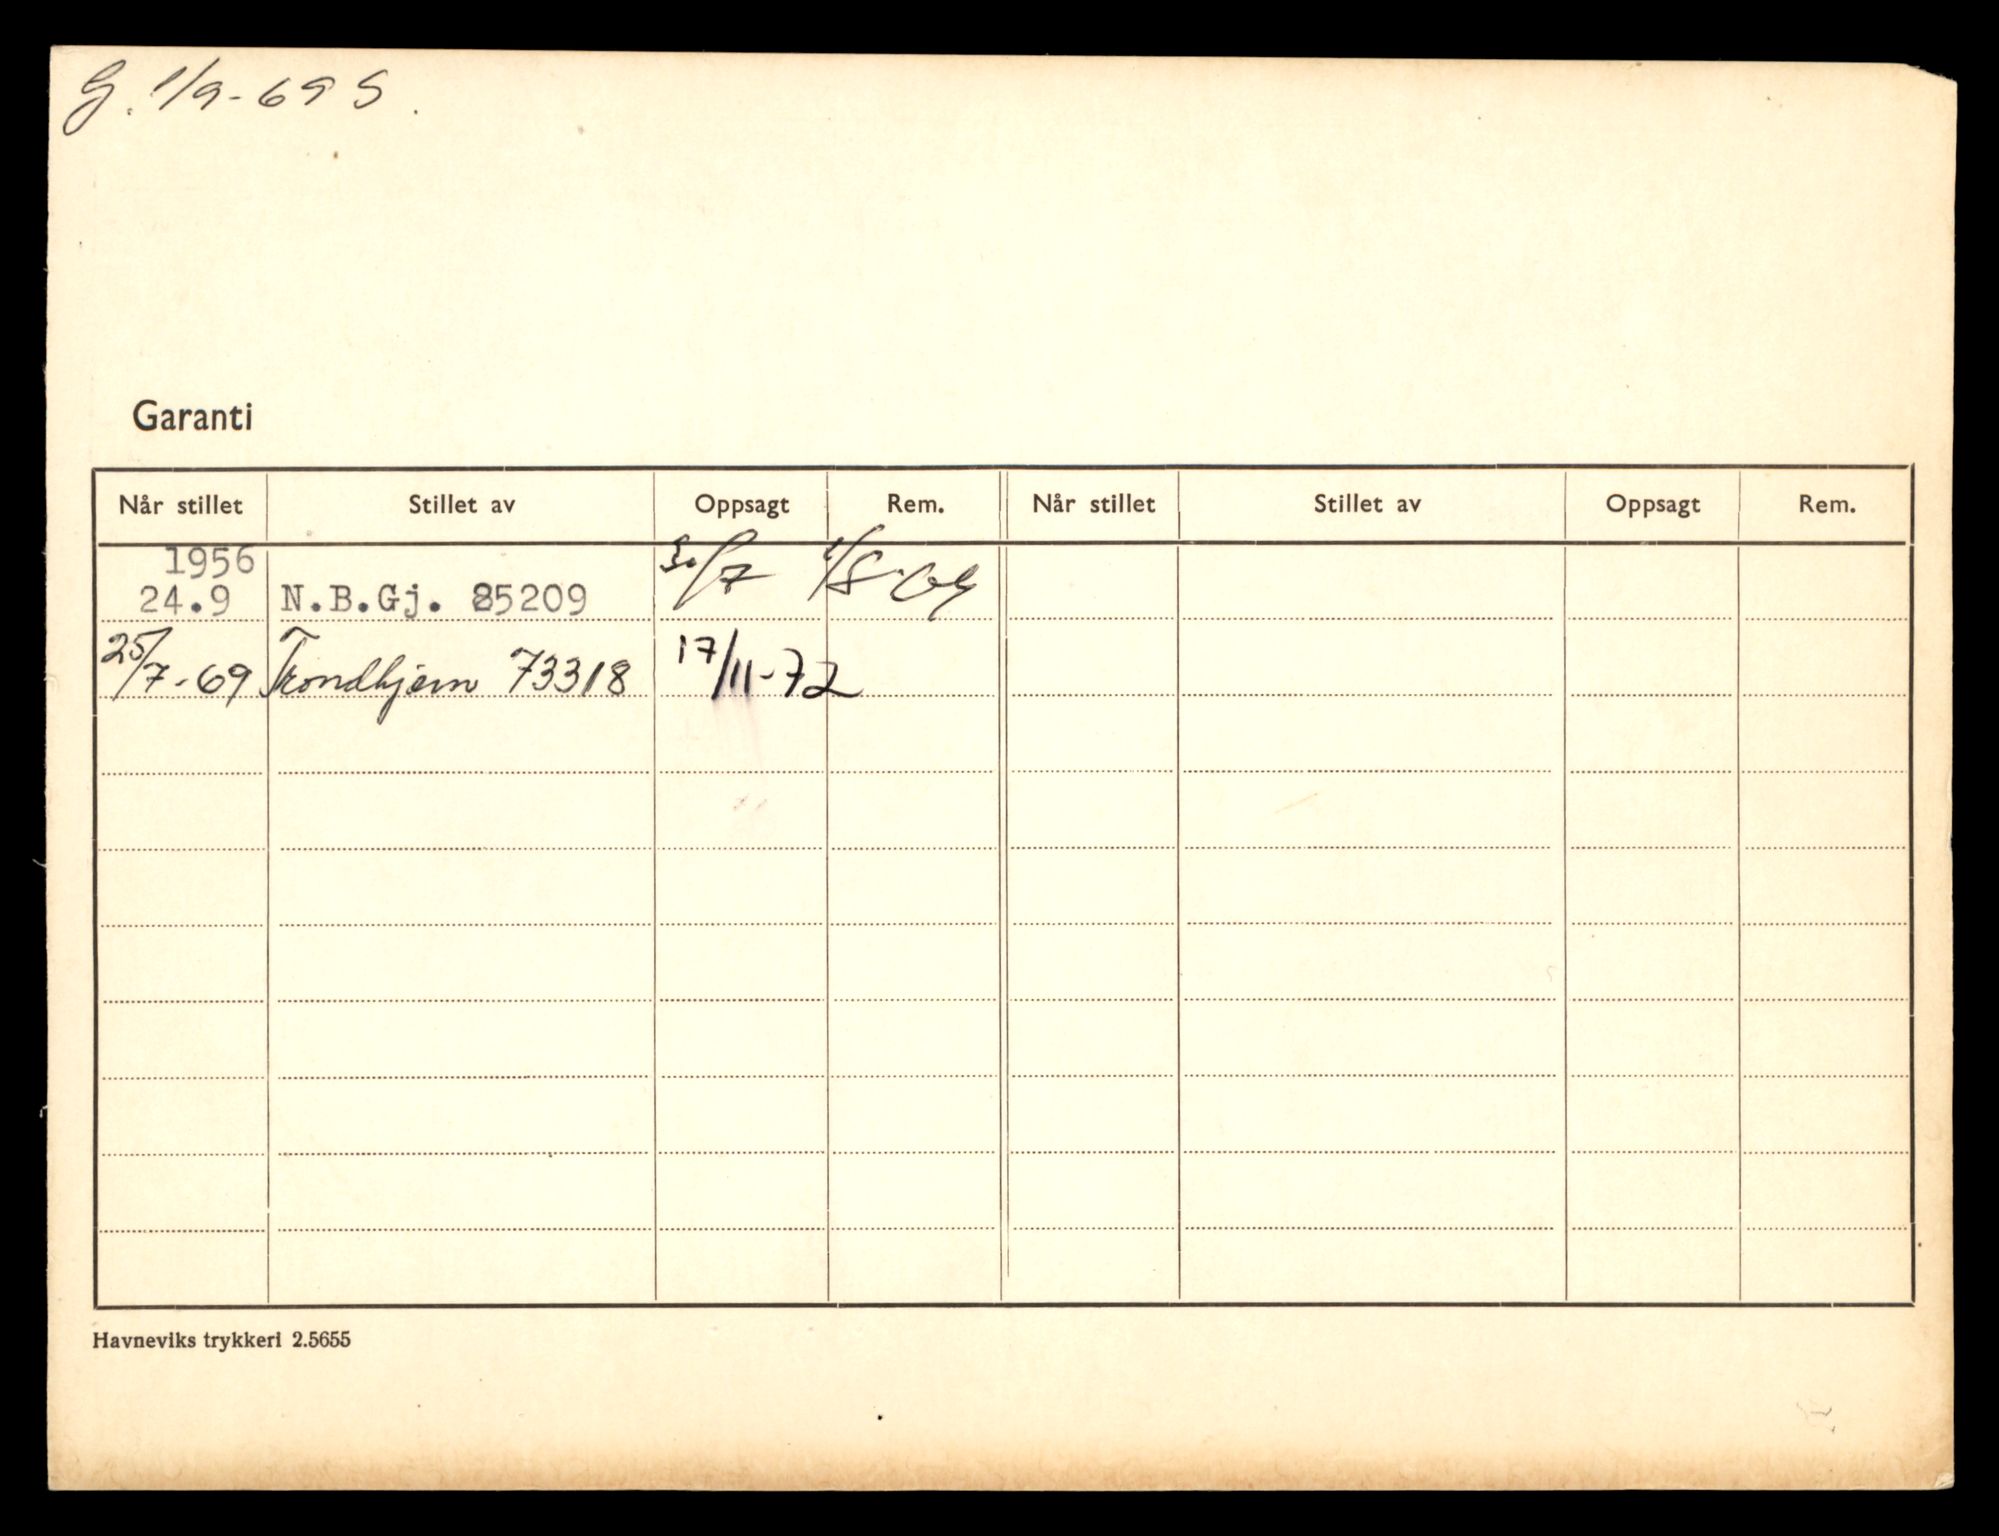 G. 1/9-69 S.
Garanti
Når stillet Stillet av Oppsagt Rem. Når stillet Stillet av Oppsagt Rem.
1956 30/7 1/8-69
24.9 N.B.Gj. 85209
25/7-69 Trondhjem 73318 17/11-72
Havneviks trykkeri 2.5655